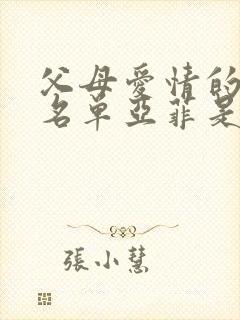 父母愛情的
名單亞菲是
張小慧